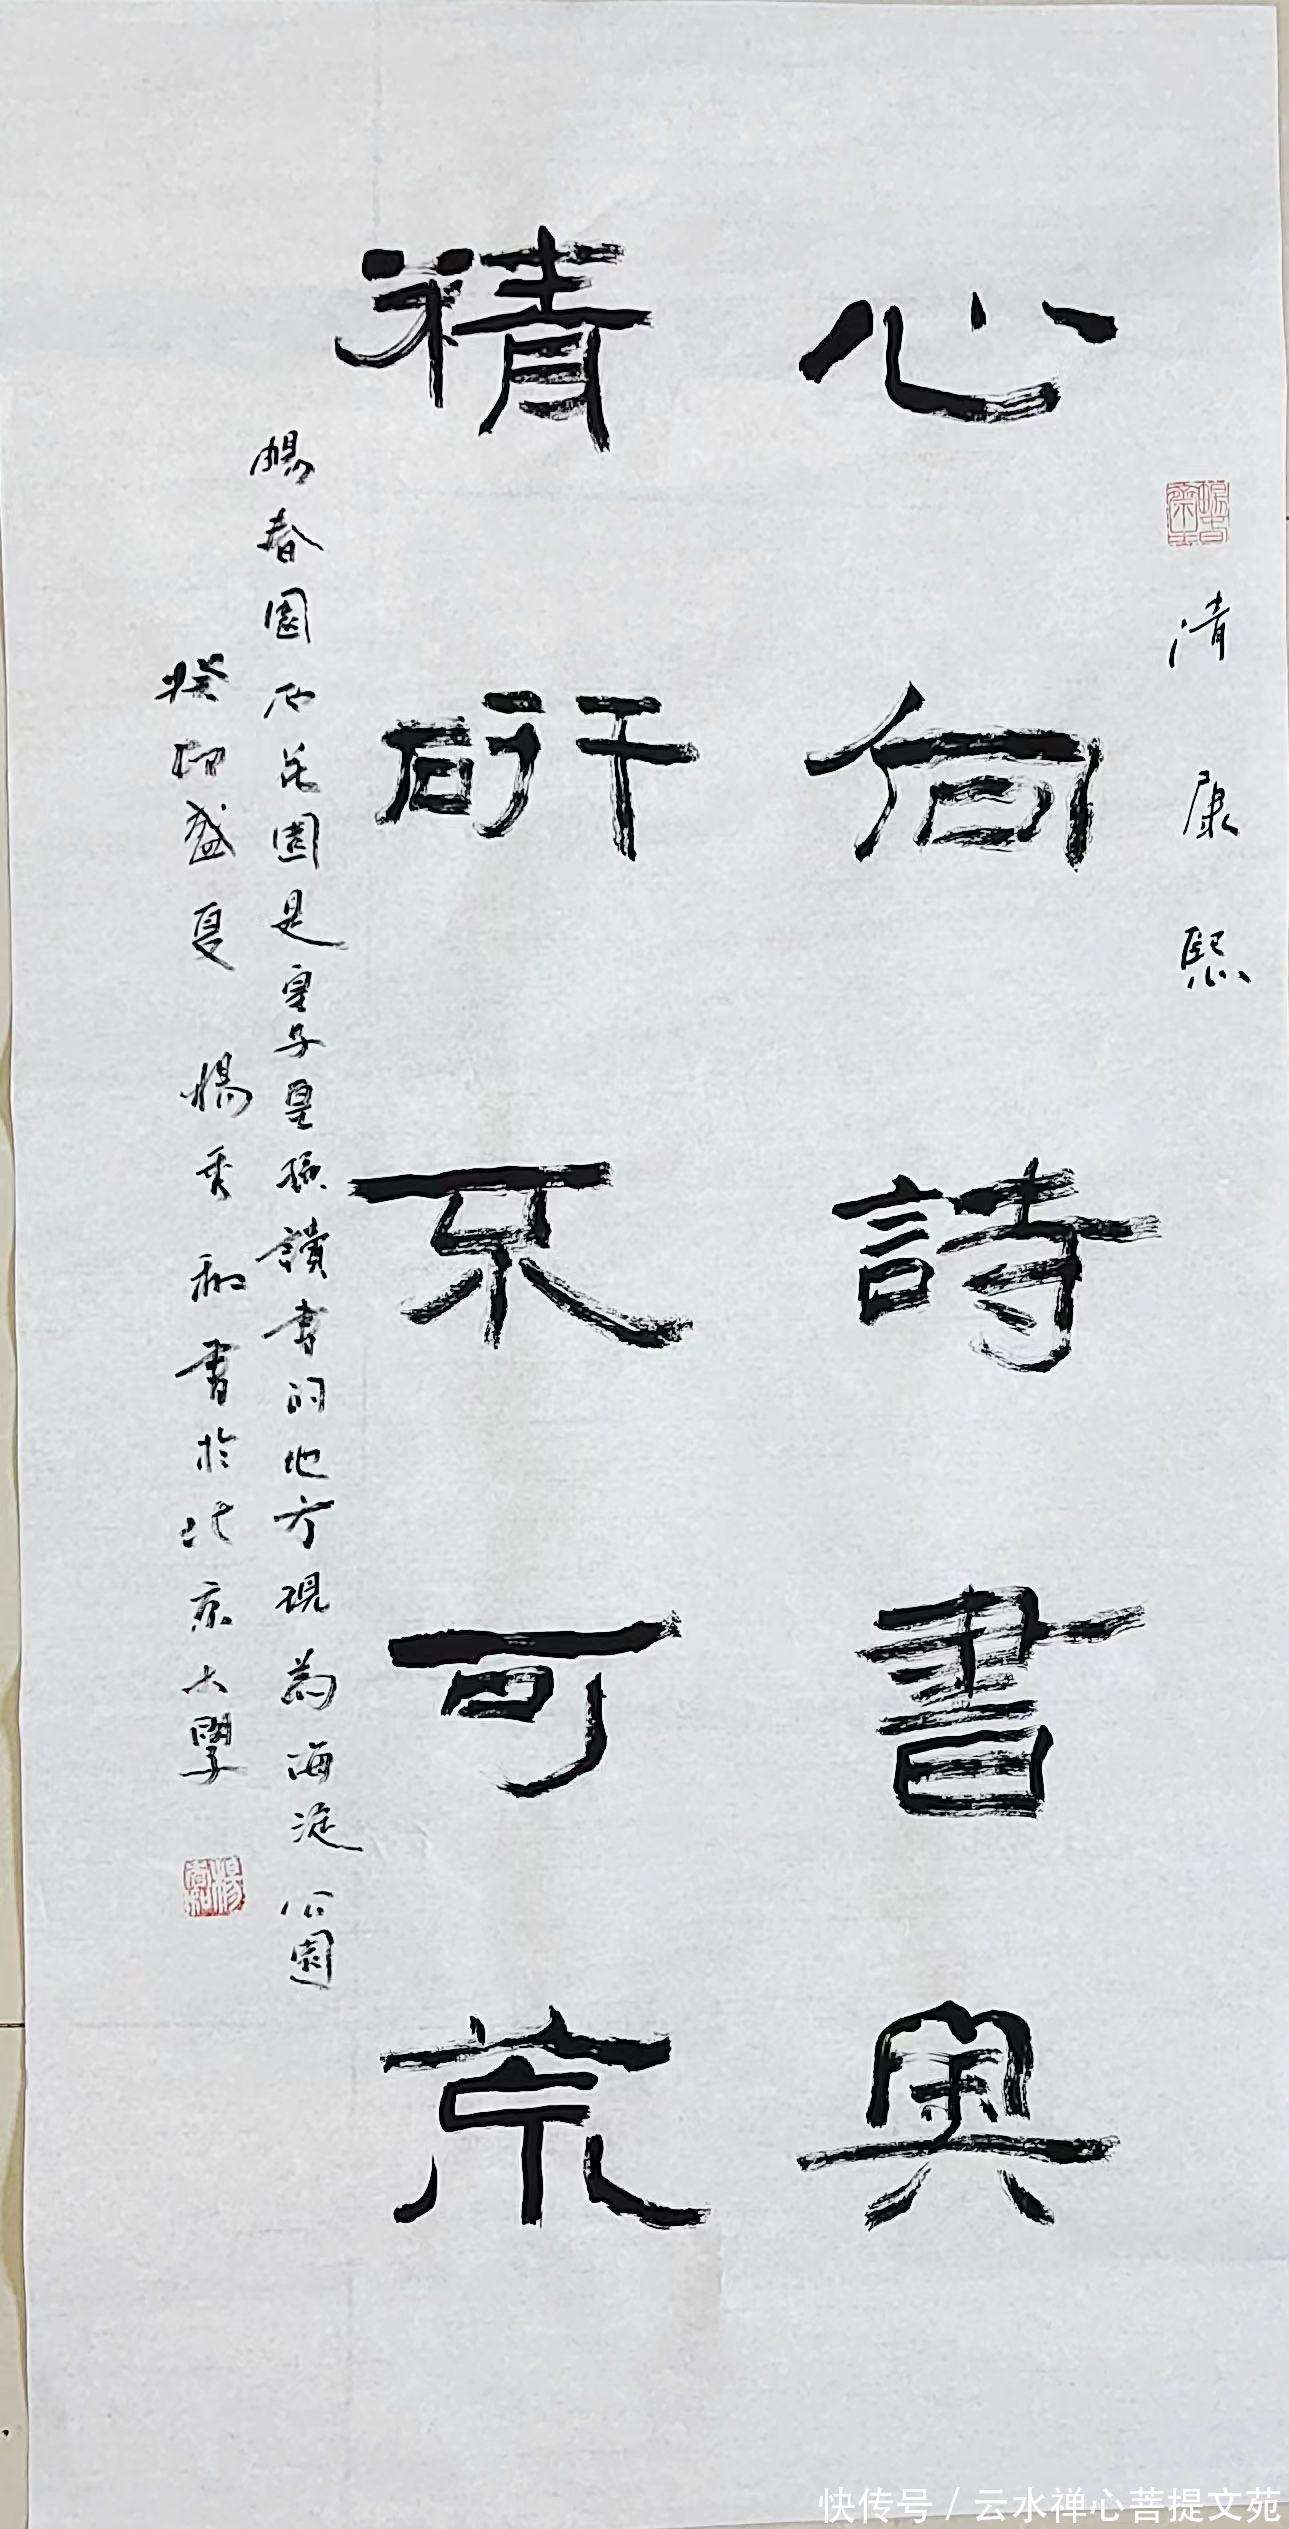 清康熙
心向詩書奧
精研不可荒
暢春園西花園是皇子皇孫讀書的地方現為海淀公園
癸卯盛夏 楊秀和書於北京大學
快传号 / 云水禅心菩提文苑